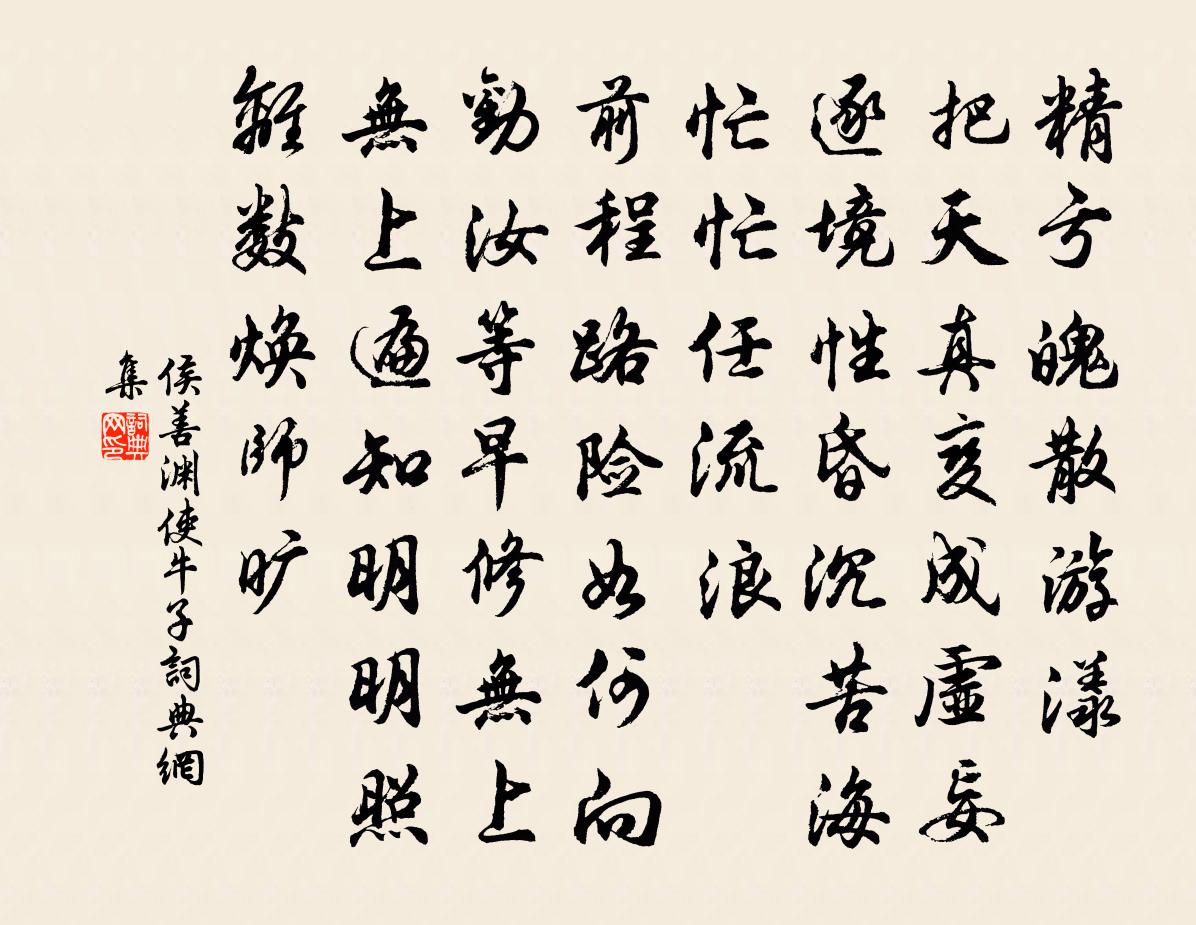 精亏魄散游漾
把天真变成虚妄
逐境性昏沉苦海
忙忙任流浪
前程路险如何向
勸汝等早修無上
無上遍知明明照
離數焕師旷
侯善渊使牛子詞典網
集
詞典
网印